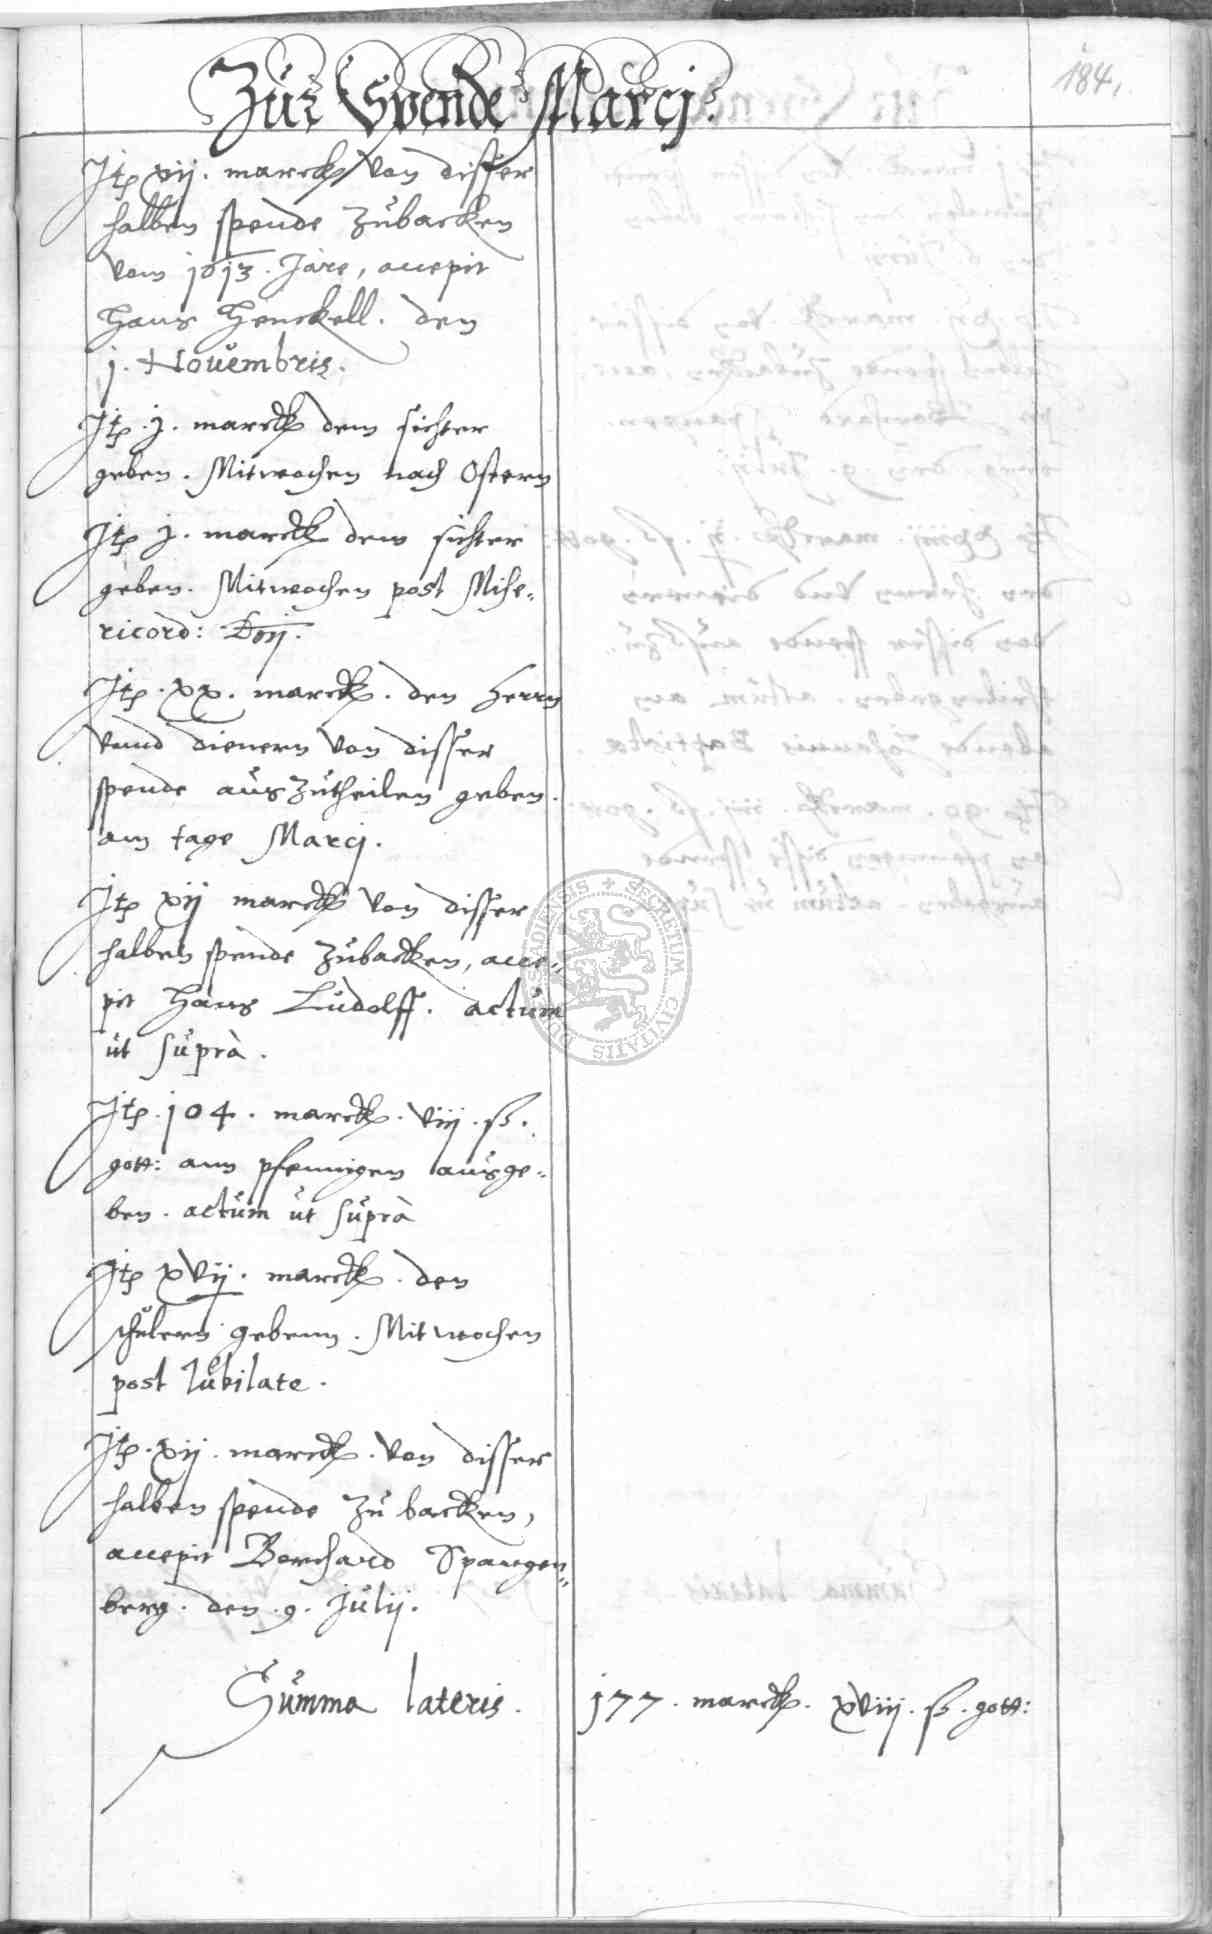 184.
Zur Spende Marcj.
Jtē xij. marck von disser
halben spende zubacken
vom 1613. Jare, accepit
Hans Henckell. den
j. Novembris.
Jtē. j. marck dem sichter
geben. Mitwochen nach Ostern
Jtē j. marck dem sichter
geben. Mitwochen post Mise„
ricord: Dnj.
Jtē. xx. marck. den Herrn
vnnd dienern von disser
spende auszutheilen geben.
am tage Marcj.
Jtē xij marck von disser
halben spende zubacken, acce„
pit Hans Ludolff. actum
ut suprà.
Jtē. 104. marck. viij. ß.
gott: ann pfennigen ausge„
ben. actum ut suprà
Jtē xvij. marck. den
schulern gebenn. Mitwochen
post Iubilate.
Jtē. xij. marck. von disser
halben spende zu backen,
accepit Borchard Spangen„
berg. den. 9. Julij.
Summa lateris. 177. marck. xviij. ß. gott:
SECRETUM CIVITATIS DUDERSTADIENSIS